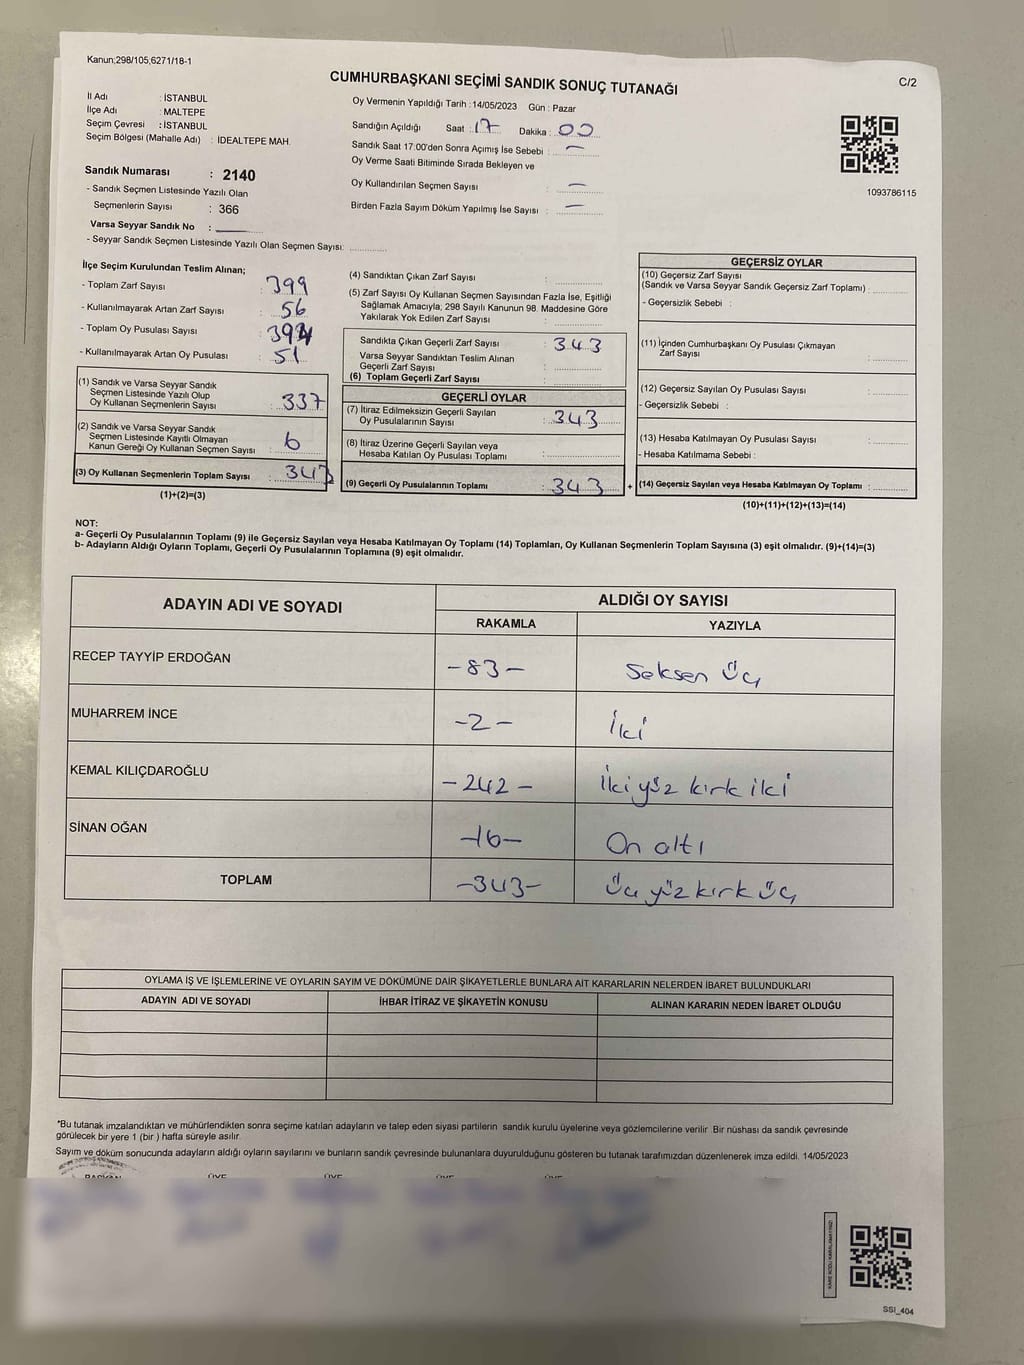 Kanun;298/105,6271/18-1
CUMHURBAŞKANI SEÇİMİ SANDIK SONUÇ TUTANAĞI
C/2
İl Adı : İSTANBUL
İlçe Adı : MALTEPE
Seçim Çevresi : İSTANBUL
Seçim Bölgesi (Mahalle Adı) : İDEALTEPE MAH.
Oy Vermenin Yapıldığı Tarih : 14/05/2023 Gün : Pazar
Sandığın Açıldığı Saat : 17 Dakika : 00
Sandık Saat 17:00'den Sonra Açımış İse Sebebi : —
Oy Verme Saati Bitiminde Sırada Bekleyen ve
Oy Kullandırılan Seçmen Sayısı : —
Birden Fazla Sayım Döküm Yapılmış İse Sayısı : —
1093786115
Sandık Numarası : 2140
- Sandık Seçmen Listesinde Yazılı Olan
Seçmenlerin Sayısı : 366
Varsa Seyyar Sandık No :
- Seyyar Sandık Seçmen Listesinde Yazılı Olan Seçmen Sayısı:
İlçe Seçim Kurulundan Teslim Alınan;
- Toplam Zarf Sayısı : 399
- Kullanılmayarak Artan Zarf Sayısı : 56
- Toplam Oy Pusulası Sayısı : 394
- Kullanılmayarak Artan Oy Pusulası : 51
(1) Sandık ve Varsa Seyyar Sandık
Seçmen Listesinde Yazılı Olup
Oy Kullanan Seçmenlerin Sayısı : 337
(2) Sandık ve Varsa Seyyar Sandık
Seçmen Listesinde Kayıtlı Olmayan
Kanun Gereği Oy Kullanan Seçmen Sayısı : 6
(3) Oy Kullanan Seçmenlerin Toplam Sayısı : 343
(1)+(2)=(3)
(4) Sandıktan Çıkan Zarf Sayısı :
(5) Zarf Sayısı Oy Kullanan Seçmen Sayısından Fazla İse, Eşitliği
Sağlamak Amacıyla, 298 Sayılı Kanunun 98. Maddesine Göre
Yakılarak Yok Edilen Zarf Sayısı :
Sandıkta Çıkan Geçerli Zarf Sayısı : 343
Varsa Seyyar Sandıktan Teslim Alınan
Geçerli Zarf Sayısı :
(6) Toplam Geçerli Zarf Sayısı :
GEÇERLİ OYLAR
(7) İtiraz Edilmeksizin Geçerli Sayılan
Oy Pusulalarının Sayısı : 343
(8) İtiraz Üzerine Geçerli Sayılan veya
Hesaba Katılan Oy Pusulası Toplamı :
(9) Geçerli Oy Pusulalarının Toplamı : 343 +
GEÇERSİZ OYLAR
(10) Geçersiz Zarf Sayısı
(Sandık ve Varsa Seyyar Sandık Geçersiz Zarf Toplamı) :
- Geçersizlik Sebebi :
(11) İçinden Cumhurbaşkanı Oy Pusulası Çıkmayan
Zarf Sayısı :
(12) Geçersiz Sayılan Oy Pusulası Sayısı :
- Geçersizlik Sebebi :
(13) Hesaba Katılmayan Oy Pusulası Sayısı :
- Hesaba Katılmama Sebebi :
(14) Geçersiz Sayılan veya Hesaba Katılmayan Oy Toplamı :
(10)+(11)+(12)+(13)=(14)
NOT:
a- Geçerli Oy Pusulalarının Toplamı (9) ile Geçersiz Sayılan veya Hesaba Katılmayan Oy Toplamı (14) Toplamları, Oy Kullanan Seçmenlerin Toplam Sayısına (3) eşit olmalıdır. (9)+(14)=(3)
b- Adayların Aldığı Oyların Toplamı, Geçerli Oy Pusulalarının Toplamına (9) eşit olmalıdır.
ADAYIN ADI VE SOYADI ALDIĞI OY SAYISI
RAKAMLA YAZIYLA
RECEP TAYYİP ERDOĞAN -83- Seksen üç
MUHARREM İNCE -2- İki
KEMAL KILIÇDAROĞLU -242- İki yüz kırk iki
SİNAN OĞAN -16- On altı
TOPLAM -343- Üç yüz kırk üç
OYLAMA İŞ VE İŞLEMLERİNE VE OYLARIN SAYIM VE DÖKÜMÜNE DAİR ŞİKAYETLERLE BUNLARA AİT KARARLARIN NELERDEN İBARET BULUNDUKLARI
ADAYIN ADI VE SOYADI İHBAR İTİRAZ VE ŞİKAYETİN KONUSU ALINAN KARARIN NEDEN İBARET OLDUĞU
*Bu tutanak imzalandıktan ve mühürlendikten sonra seçime katılan adayların ve talep eden siyasi partilerin sandık kurulu üyelerine veya gözlemcilerine verilir. Bir nüshası da sandık çevresinde
görülecek bir yere 1 (bir ) hafta süreyle asılır.
Sayım ve döküm sonucunda adayların aldığı oyların sayılarını ve bunların sandık çevresinde bulunanlara duyurulduğunu gösteren bu tutanak tarafımızdan düzenlenerek imza edildi. 14/05/2023
BAŞKAN ÜYE ÜYE ÜYE ÜYE
SSI_404